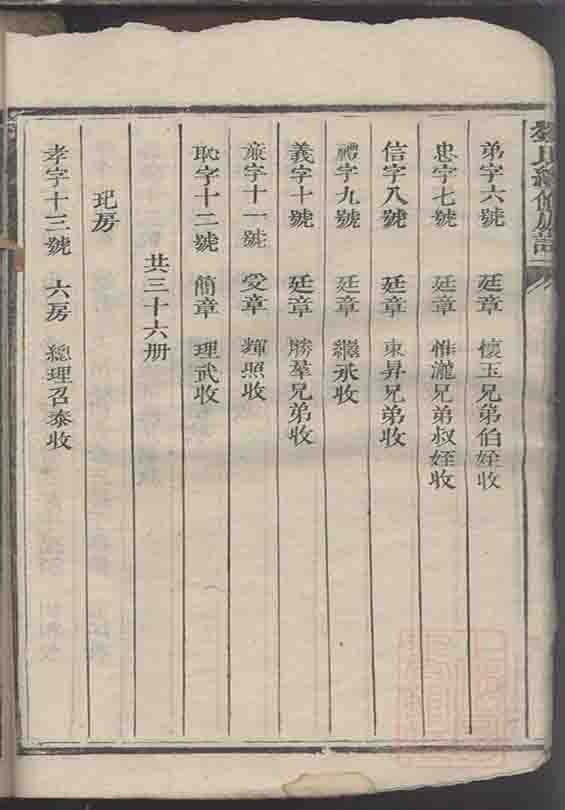 弟字六號 廷章 懷玉兄弟伯姪收
忠字七號 廷章 惟瀧兄弟叔姪收
信字八號 廷章 東昇兄弟收
禮字九號 廷章 繼承收
義字十號 廷章 勝羣兄弟收
廉字十一號 受章 輝照收
恥字十二號 簡章 理武收
共三十六册
玘房
孝字十三號 六房 總理召泰收